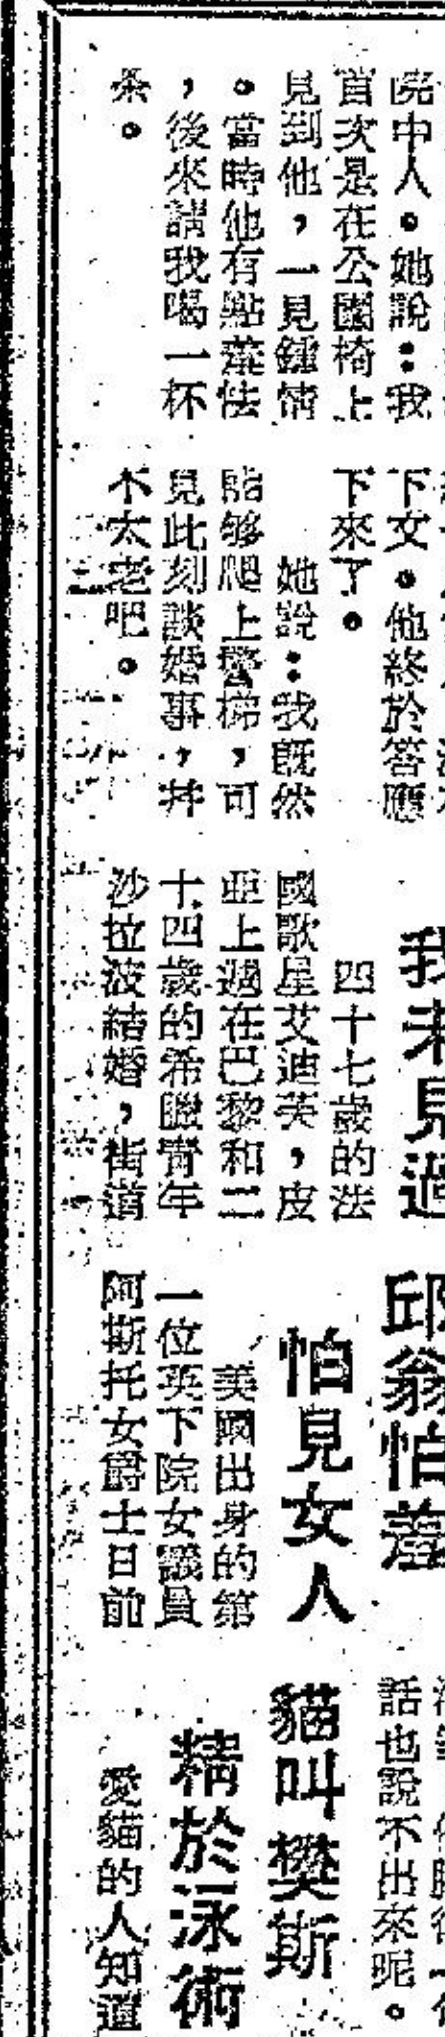 院中人。她說：我
首次是在公園椅上
見到他，一見鍾情
。當時他有點羞怯
，後來請我喝一杯
茶。
下文。他終於答應
下來了。
她說：我既然
能够爬上雲梯，可
見此刻談婚事，幷
不太老吧。
我未見過
四十七歲的法
國歌星艾迪芙，皮
亞上週在巴黎和二
十四歲的希臘青年
沙拉波結婚，街道
邱翁怕羞
怕見女人
美國出身的第
一位英下院女議員
阿斯托女爵士日前
話也說不出來呢。
貓叫樊斯
精於泳術
愛貓的人知道